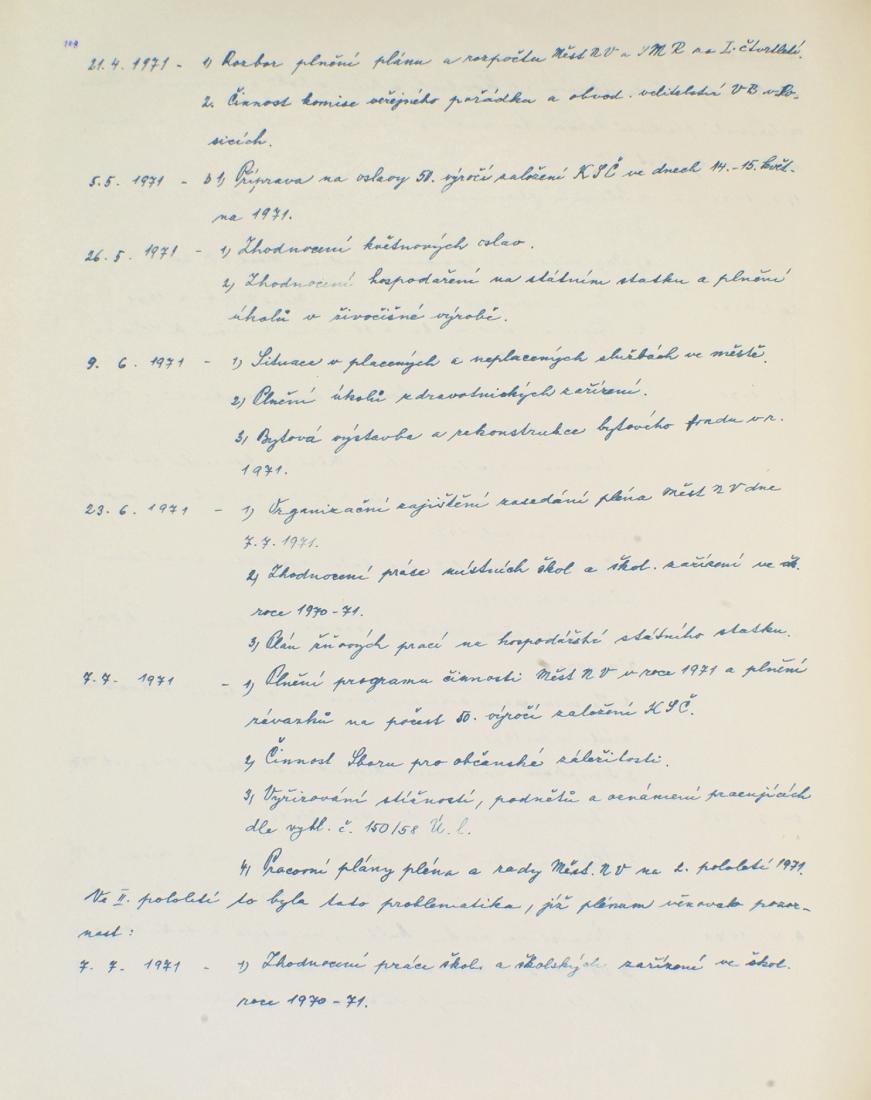 21.4.1971 - 1) Rozbor plnění plánu a rozpočtu Měst NV a SMR za I. čtvrtletí.
2. Činnost komise veřejného pořádku a obvod. velitelství VB v Po-
sicích.
5.5. 1971 - 1) Příprava na oslavy 50. výročí založení KSČ ve dnech 14.-15. květ-
na 1971.
26.5. 1971 - 1) Zhodnocení květnových oslav.
2) Zhodnocení hospodaření na státním statku a plnění
úkolů v živočišné výrobě.
9. 6. 1971 - 1) Situace v placených a neplacených službách ve městě.
2) Plnění úkolů zdravotnických zařízení.
3) Bytová výstavba a rekonstrukce bytového fondu v r.
1971.
23. 6. 1971 - 1) Organizační zajištění zasedání pléna Měst NV dne
7.7.1971.
2) Zhodnocení práce místních škol a škol. zařízení ve šk.
roce 1970-71.
3) Plán žňových prací na hospodářství státního statku.
7.7. 1971 - 1) Plnění programu činnosti Měst NV v roce 1971 a plnění
závazků na počest 50. výročí založení KSČ.
2) Činnost Sboru pro občanské záležitosti.
3) Vyřizování stížností, podnětů a oznámení pracujících
dle vyhl. č. 150/58 Ú. l.
4) Pracovní plány pléna a rady Měst. NV na 2. pololetí 1971.
Ve II. pololetí to byla tato problematika, jíž plénum věnovalo pozor-
nost:
7. 7. 1971 - 1) Zhodnocení práce škol. a školských zařízení ve škol.
roce 1970-71.